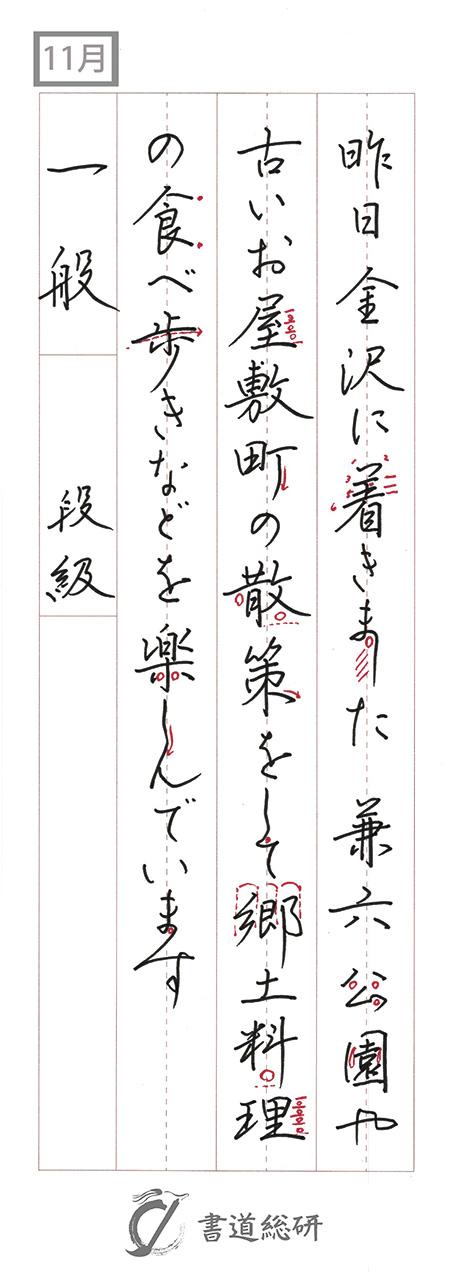 11月
昨日金沢に着きました 兼六公園や
古いお屋敷町の散策をして郷土料理
の食べ歩きなどを楽しんでいます
一般 段級
書道総研